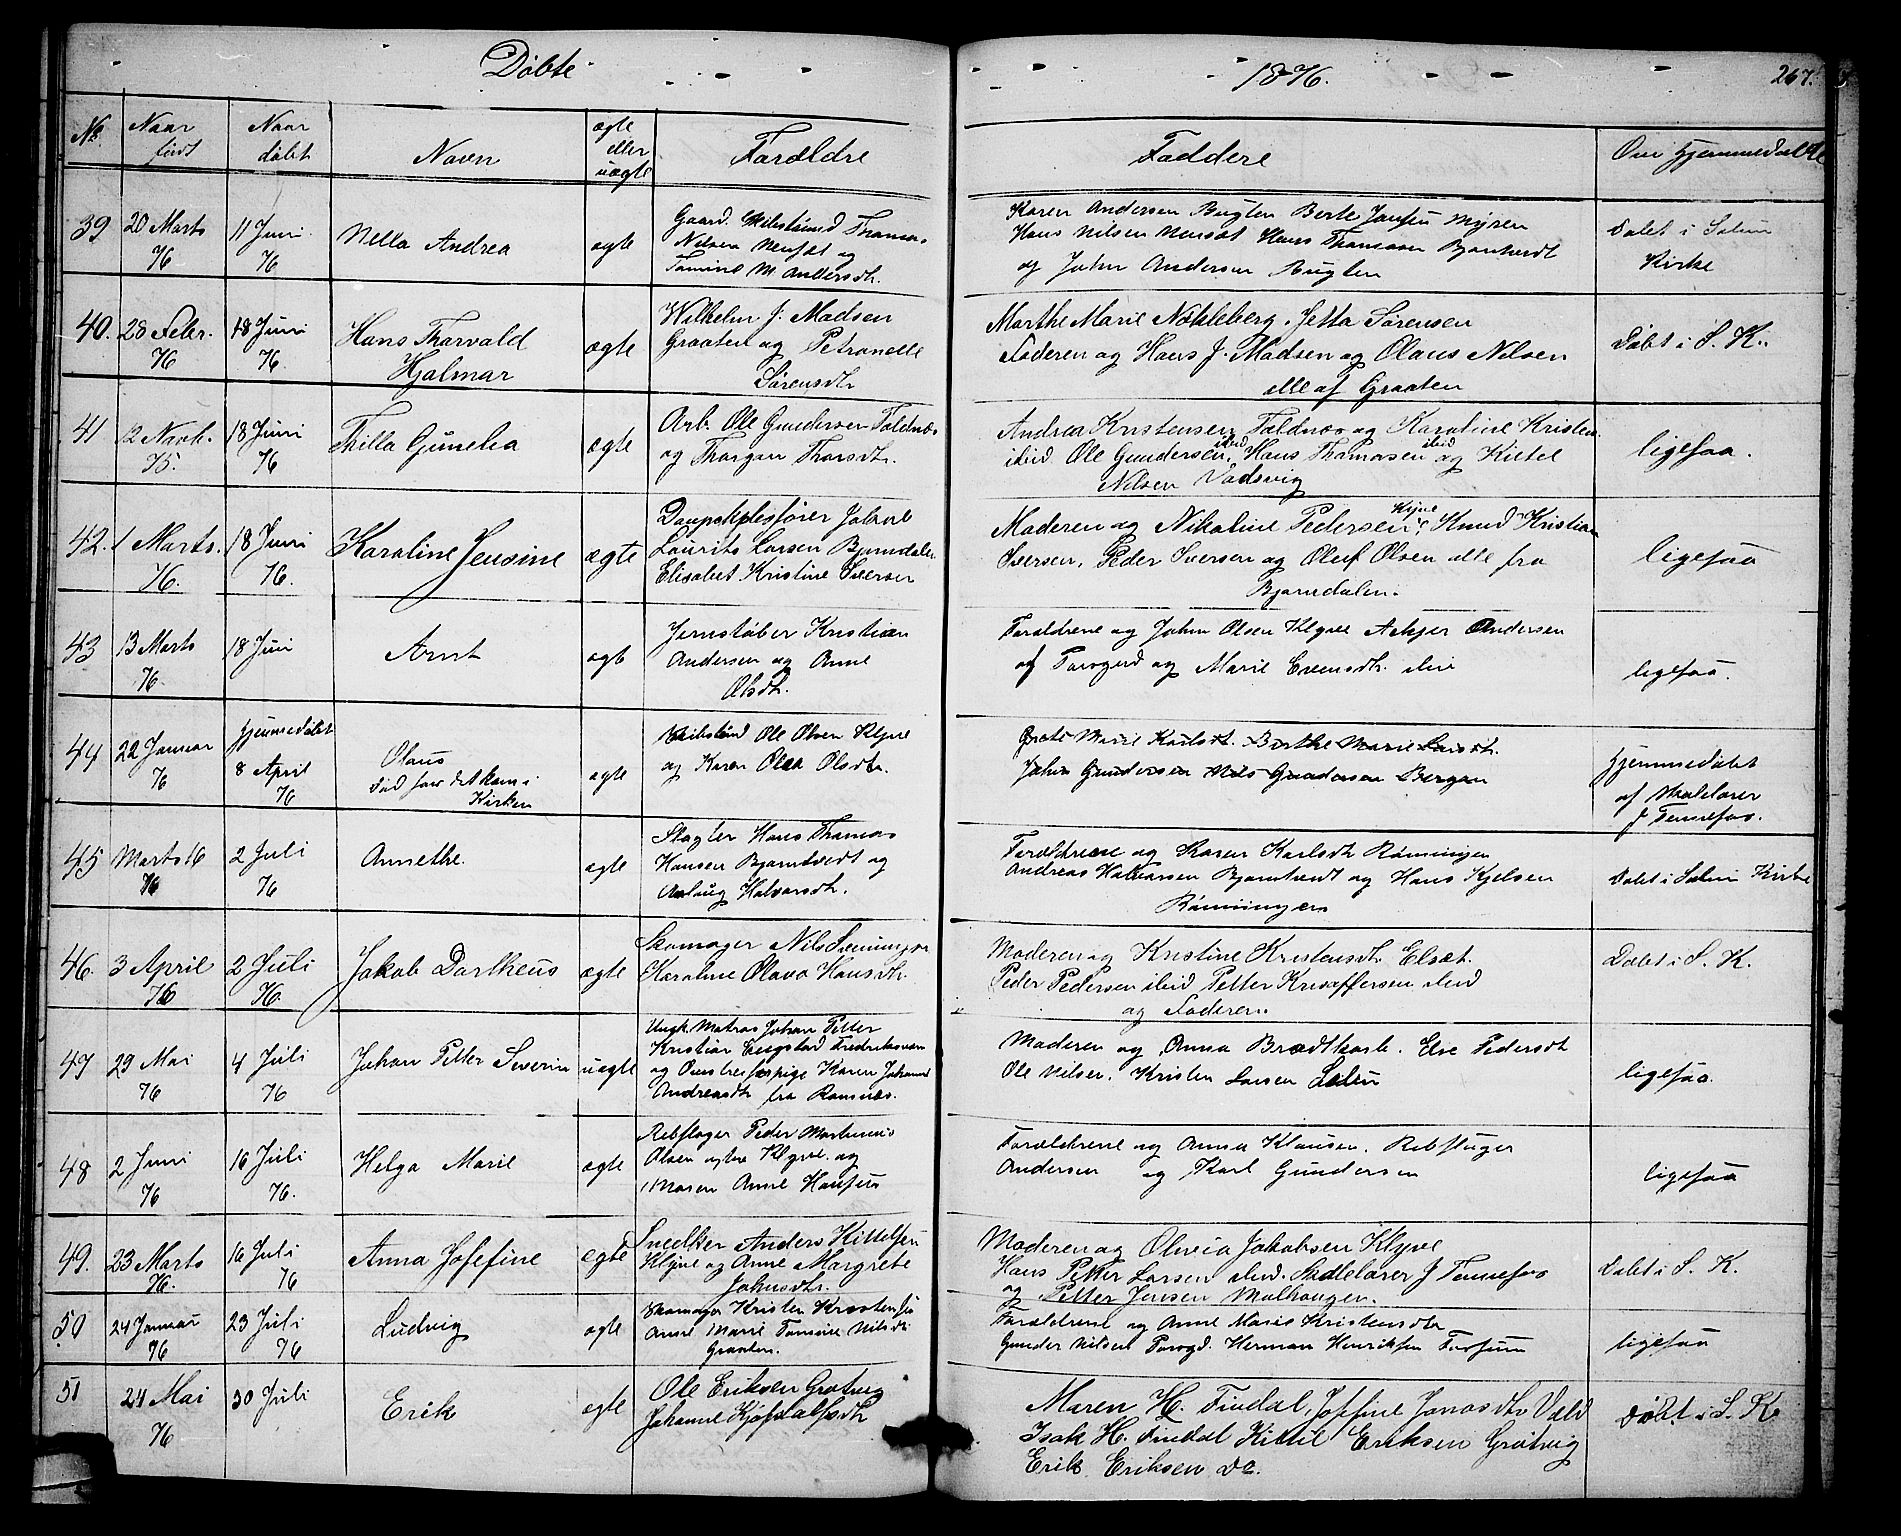 Döbte
1876.
267.
No. Naar födt Naar döbt Navn ægte eller uægte Forældre Faddere Om Hjemmedöbte
39 20 Marts 76 11 Juni 76 Nella Andrea ægte
Gaard. Thomas
Nilsen og
M. Andersdtr.
Karen Andersen Bugten Berte Jansen Myren
Hans Nilsen Hans Thomasen
og John Andersen Bugten
Döbt i Solum
Kirke
40. 28 Febr. 76 18 Juni 76. Hans Thorvald
Hjalmar
ægte
Wilhelm J. Madsen
Graaten og Petronelle
Sörensdtr
Marthe Marie Nökleberg, Jetta Sörensen
Faderen og Hans J. Madsen og Olaus Nilsen
alle af Graaten
Döbt i S. K.
41 12 Novb. 75. 18 Juni 76 Thilla Gunelia ægte
Arb. Ole Gundersen Foldnæs
og Thorgon Thorsdtr.
Andrea Kristensen Foldnæs og Karoline Kristen
ibid Ole Gundersen, ibid Hans Thomasen ibid og Kittel
Nilsen Vadsvig
ligesaa.
42. 1 Marts. 76. 18 Juni 76. Karoline Jensine ægte
Dampskibsförer Jakob
Laurits Larsen Bjorndalen
Elisabet Kristine Iversen
Moderen og Nikoline Pedersen Klyve, Knud Kristian
Iversen, Peder Iversen og Oluf Olsen alle fra
Bjorndalen.
ligesaa
43 13 Marts 76. 18 Juni Arnt ægte
Jernstöber Kristian
Andersen og Anne
Olsdtr.
Forældrene og John Olsen Klyve Andersen
af og Marie Evensdtr. ibid
ligesaa.
44 22 Januar 76 Hjemmedöbt
8 April 76
Olaus
död för det kom i
Kirken
ægte
Ole Olsen Klyve
og Karen Olea Olsdtr.
Grete Marie Karlsdt. Birthe Marie Larsdt.
John Gundersen Nils Gundersen Bergan
Hjemmedöbt
af Skolelærer
J Tennefos.
45 Marts 16 76 2 Juli 76 Annethe. ægte
Slagter Hans Thomas
Hansen Bjorntvedt og
Aslaug Halvorsdtr.
Forældrene og Karen Karlsdtr Rönningen
Andreas Halvorsen Bjorntvedt og Hans Kjelsen
Rönningen
Döbt i Solum Kirke
46. 3 April 76 2 Juli 76. Jakob Dortheus ægte
Skomager Nils
Karoline Olava Hansdtr.
Moderen og Kristine Kristensdtr. Elsæt.
Peder Pedersen ibid Petter Kristoffersen ibid
og Faderen.
Döbt i S. K.
47 29 Mai 76 4 Juli 76 Johan Petter Severin uægte
Ungk. Matros Johan Petter
Kristian Fredriksværn
og Karen Johanne
Andreasdtr fra Ramsnæs.
Moderen og Anna Brædtkorb. Else Pedersdt
Ole Nilsen. Kristen Larsen
ligesaa.
48 2 Juni 76 16 Juli 76. Helga Marie ægte
Rebslager Peder Martinius
Olsen Klyve. og
Maren Anne Hansen
Forældrene og Anna Klausen. Rebslager
Andersen og Karl Gundersen
ligesaa
49. 23 Marts 76. 16 Juli 76 Anna Josefine ægte
Snedker Anders Kittelsen
Klyve og Anne Margrete
Johnsdtr.
Moderen og Olivia Jakobsen Klyve
Hans Petter Larsen ibid. Skolelærer J Tennefos
og Petter Jensen Molhaugen.
Döbt i S. K.
50 24 Januar 76 23 Juli 76 Ludvig ægte
Skomager Kristen Kristensen
Anne Marie Tomine Nilsdtr
Graaten.
Forældrene og Anne Maria Kristensdtr
Gunder Nilsen Herman Henriksen
ligesaa
51 24 Mai 76 30 Juli Erik ægte
Ole Eriksen Grotvig
Johanne
Maren H. Findal, Josefine Jonasdtr Vold
Isak H. Findal Kittil Eriksen Grotvig
Erik Eriksen do.
Döbt i S. K.